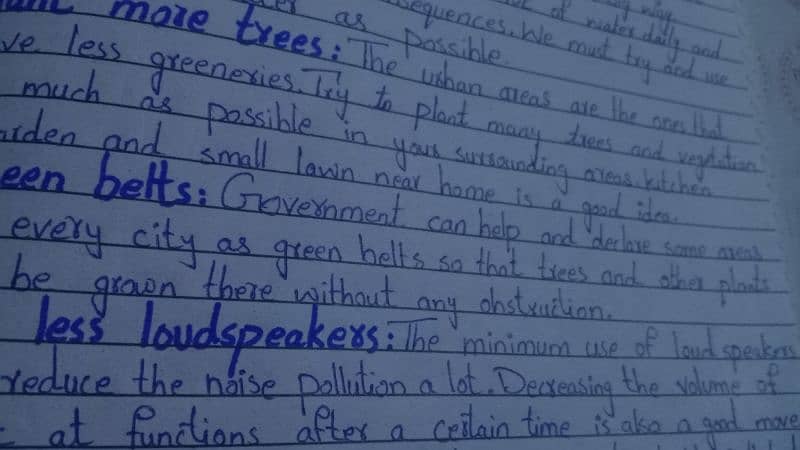 of water daily and
sequences. We must try and use
as possible.
more trees: The urban areas are the ones that
ve less greeneries. Try to plant many trees and vegetation
much as possible in your surrounding areas. kitchen
arden and small lawn near home is a good idea.
een belts: Government can help and declare some areas
every city as green belts so that trees and other plants
be grown there without any obstruction.
less loudspeakers: The minimum use of loud speakers
reduce the noise pollution a lot. Decreasing the volume of
at functions after a certain time is also a good move